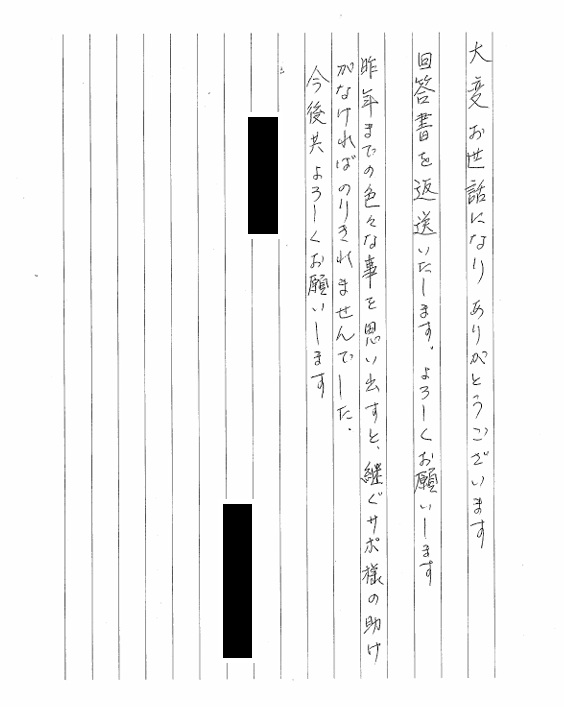 大変お世話になりありがとうございます
回答書を返送いたします。よろしくお願いします
昨年までの色々な事を思い出すと、継ぐサポ様の助け
がなければのりきれませんでした。
今後共よろしくお願いします